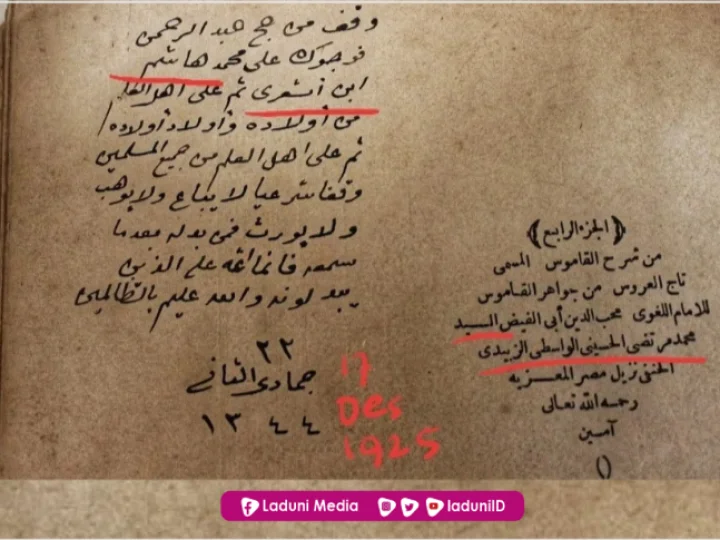 وقف من حج عبد الرحمن
فوجوك على محمد هاشم
ابن أشعرى ثم على اهل العلم
من أولاده وأولاد أولاده
ثم على اهل العلم من جميع المسلمين
وقفا شرعيا لا يباع ولا يوهب
ولا يورث فمن بدله بعدما
سمعه فانما اثمه على الذين
يبدلونه والله عليم بالظالمين
٢٢
جمادى الثانى
١٣٤٤
17
Des
1925
﴿الجزء الرابع﴾
من شرح القاموس المسمى
تاج العروس من جواهر القاموس
للامام اللغوى محب الدين أبى الفيض السيد
محمد مرتضى الحسينى الواسطى الزبيدى
الحنفى نزيل مصر المعزيه
رحمه الله تعالى
آمين
()
Laduni Media laduniID